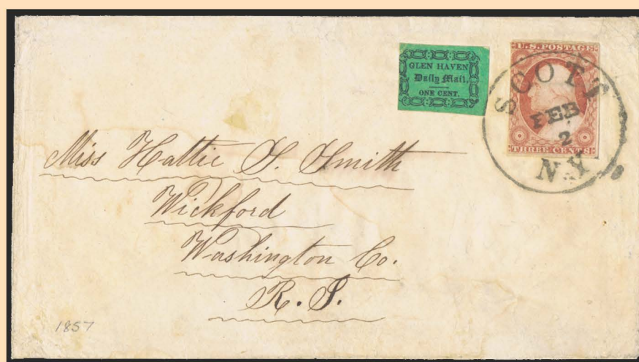 GLEN HAVEN
Daily Mail.
ONE CENT.
U.S. POSTAGE
THREE CENTS
SCOTT
FEB
2
N.Y
Miss Hattie S. Smith
Wickford
Washington Co.
R. I.
1857